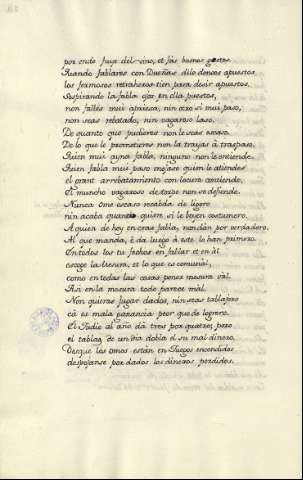 por ende fuye del vino, et fás buenos gestos
Quando fablares con Dueñas dile doneos apuestos,
los fermosos retraheres tien para desir apuestos,
Sospirando le fabla ojos en ella puestos,
non fables mui apriesa, nin otro si mui paso,
non seas rebatado, nin vagaroso laso,
De quanto que pudieres non le seas escaso
De lo que le prometieres non la trayas á traspaso,
Quien mui ayna fabla, ninguno non lo entiende,
Quien fabla mui paso enojase quien le atiende
el grant arrebatamiento con locura contiende,
el muncho vagaroso de torpe non se defiende.
Nunca ome escaso recabda de ligero
nin acaba quanto quiere si le veyen costumero,
A quien de hoy en cras fabla, non dan por verdadero,
Al que manda, é da luego á este lo han primero.
En todos los tus fechos en fablar et en ál
escoge la mesura, et lo que es comunal,
como en todas las cosas poner mesura val,
Asi sin la mesura todo parece mal.
Non quieras jugar dados, nin seas tablajero
cá es mala ganancia peor que de logrero.
El Judio al año dá tres por quatro; pero
el tablax de un dia dobla el su mal dinero
Desque los omes están en juegos encendidos
despojanse por dados los dineros perdidos.